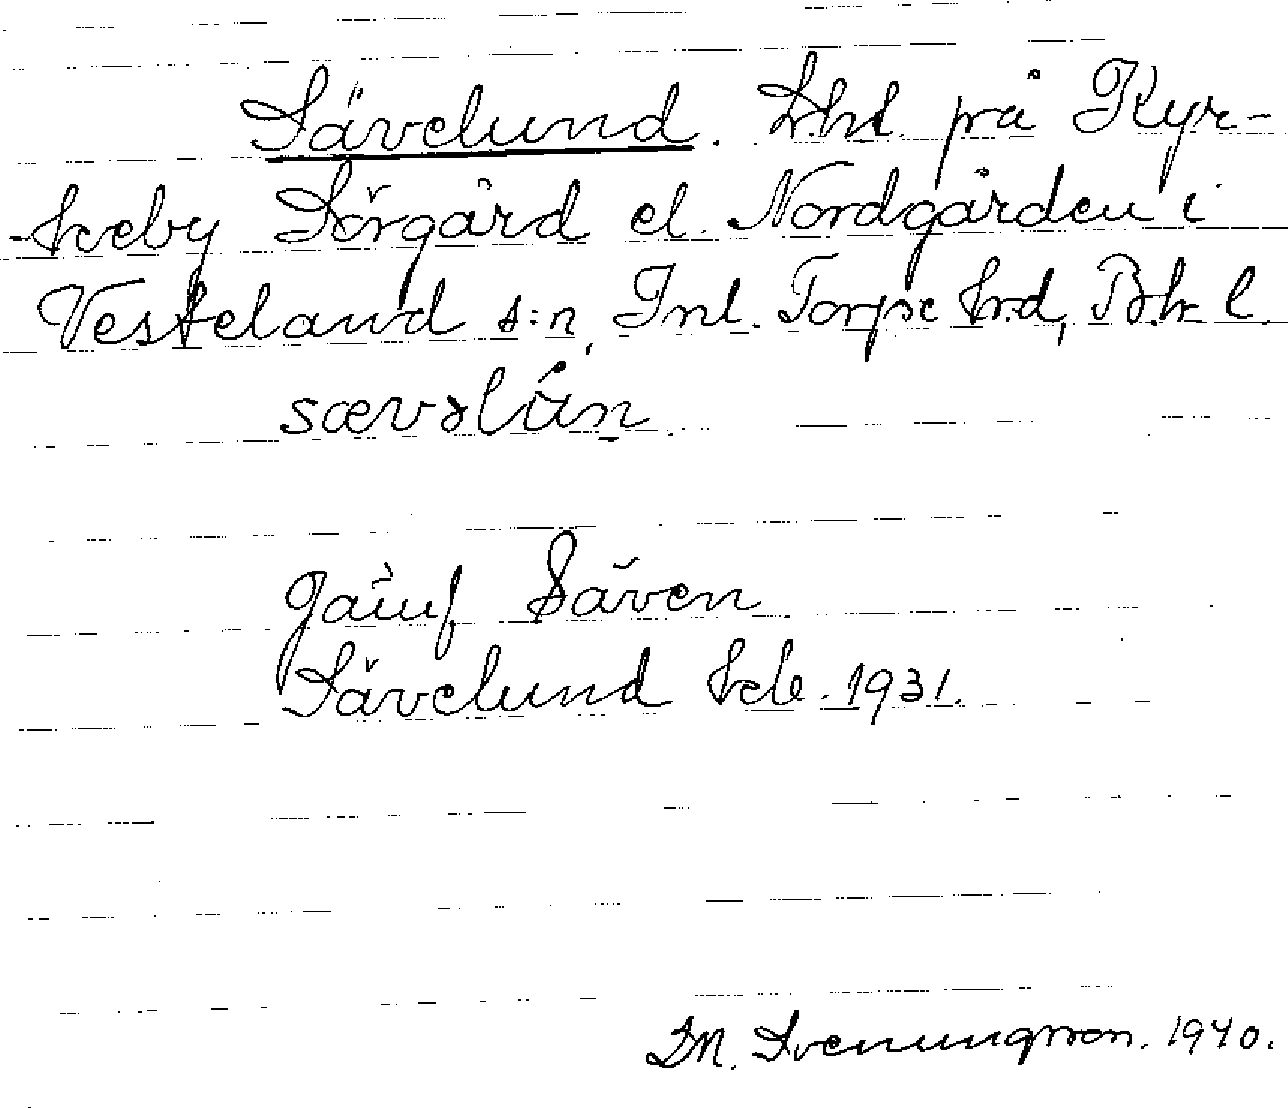 Sävelund. Lht. på Kyr-
keby Sörgård el. Nordgården i
Vesteland s:n, Inl. Torpe hrd, Bh. l.
sævəlún
Jämf Säven
Sävelund Feb. 1931.
D.N. Svenungsson. 1940.